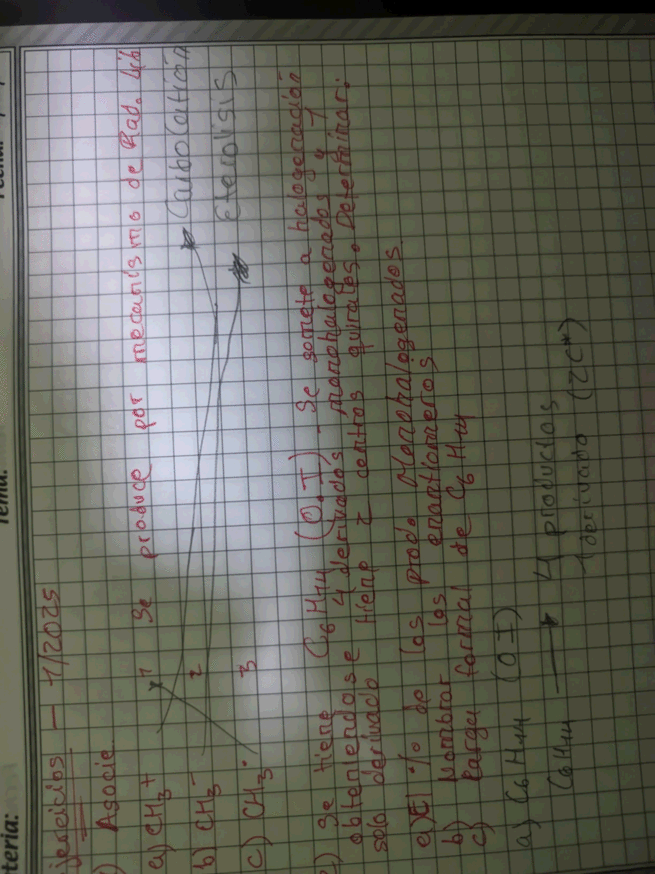 teria:
Tema:
Fecha:
jercicios - 1/2025
) Asocie.
a) CH3+ 1 Se produce por mecanismo de Rad. Lib
b) CH3- 2 Carbocatión
c) CH3• 3 Eterolisis
) Se tiene C6H14 (O.I). Se somete a halogenación
obteniendose 4 derivados monohalogenados y 1
solo derivado tiene 2 centros quirales. Determinar:
a) El % de los prods Monohalogenados
b) Nombrar los enantiomeros
c) Carga formal de C6H14
a) C6H14 (OI)
C6H14 → 4 productos
1 derivado (2C*)